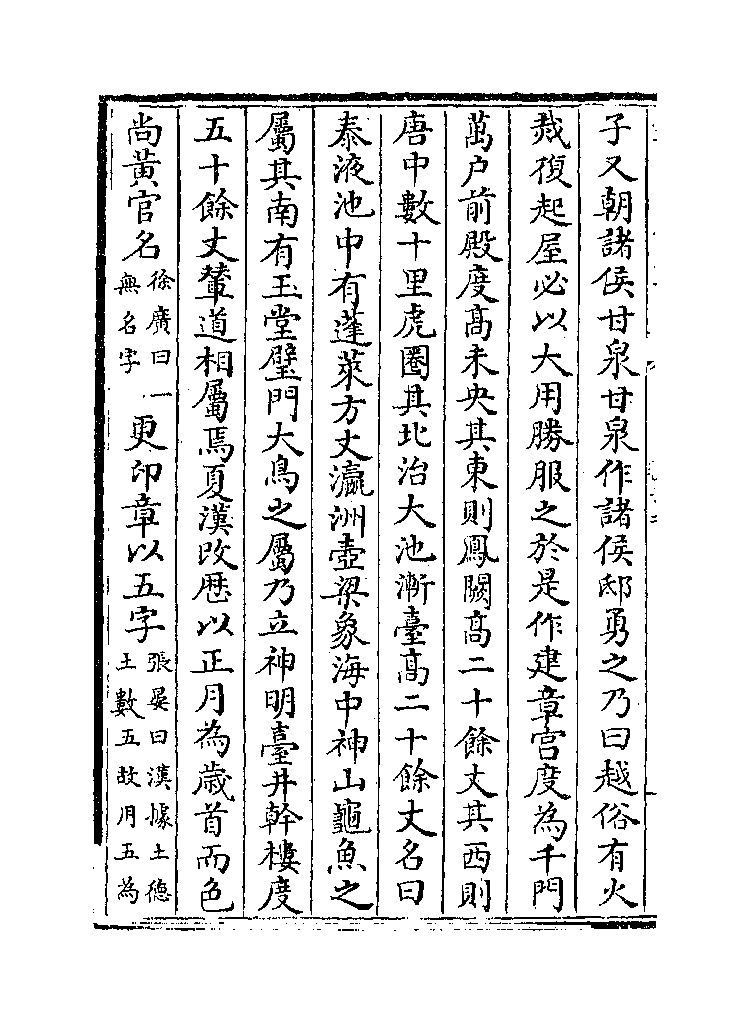 子又朝諸侯甘泉甘泉作諸侯邸勇之乃曰越俗有火
烖復起屋必以大用勝服之於是作建章宫度為千門
萬户前殿度髙未央其東則鳳闕髙二十餘丈其西則
唐中數十里虎圈其北治大池漸臺髙二十餘丈名曰
泰液池中有蓬萊方丈瀛洲壺梁象海中神山龜魚之
屬其南有玉堂璧門大鳥之屬乃立神明臺井幹樓度
五十餘丈輦道相屬焉夏漢改厯以正月為歳首而色
尚黄官名徐廣曰一無名字更印章以五字張晏曰漢據土德土數五故用五為